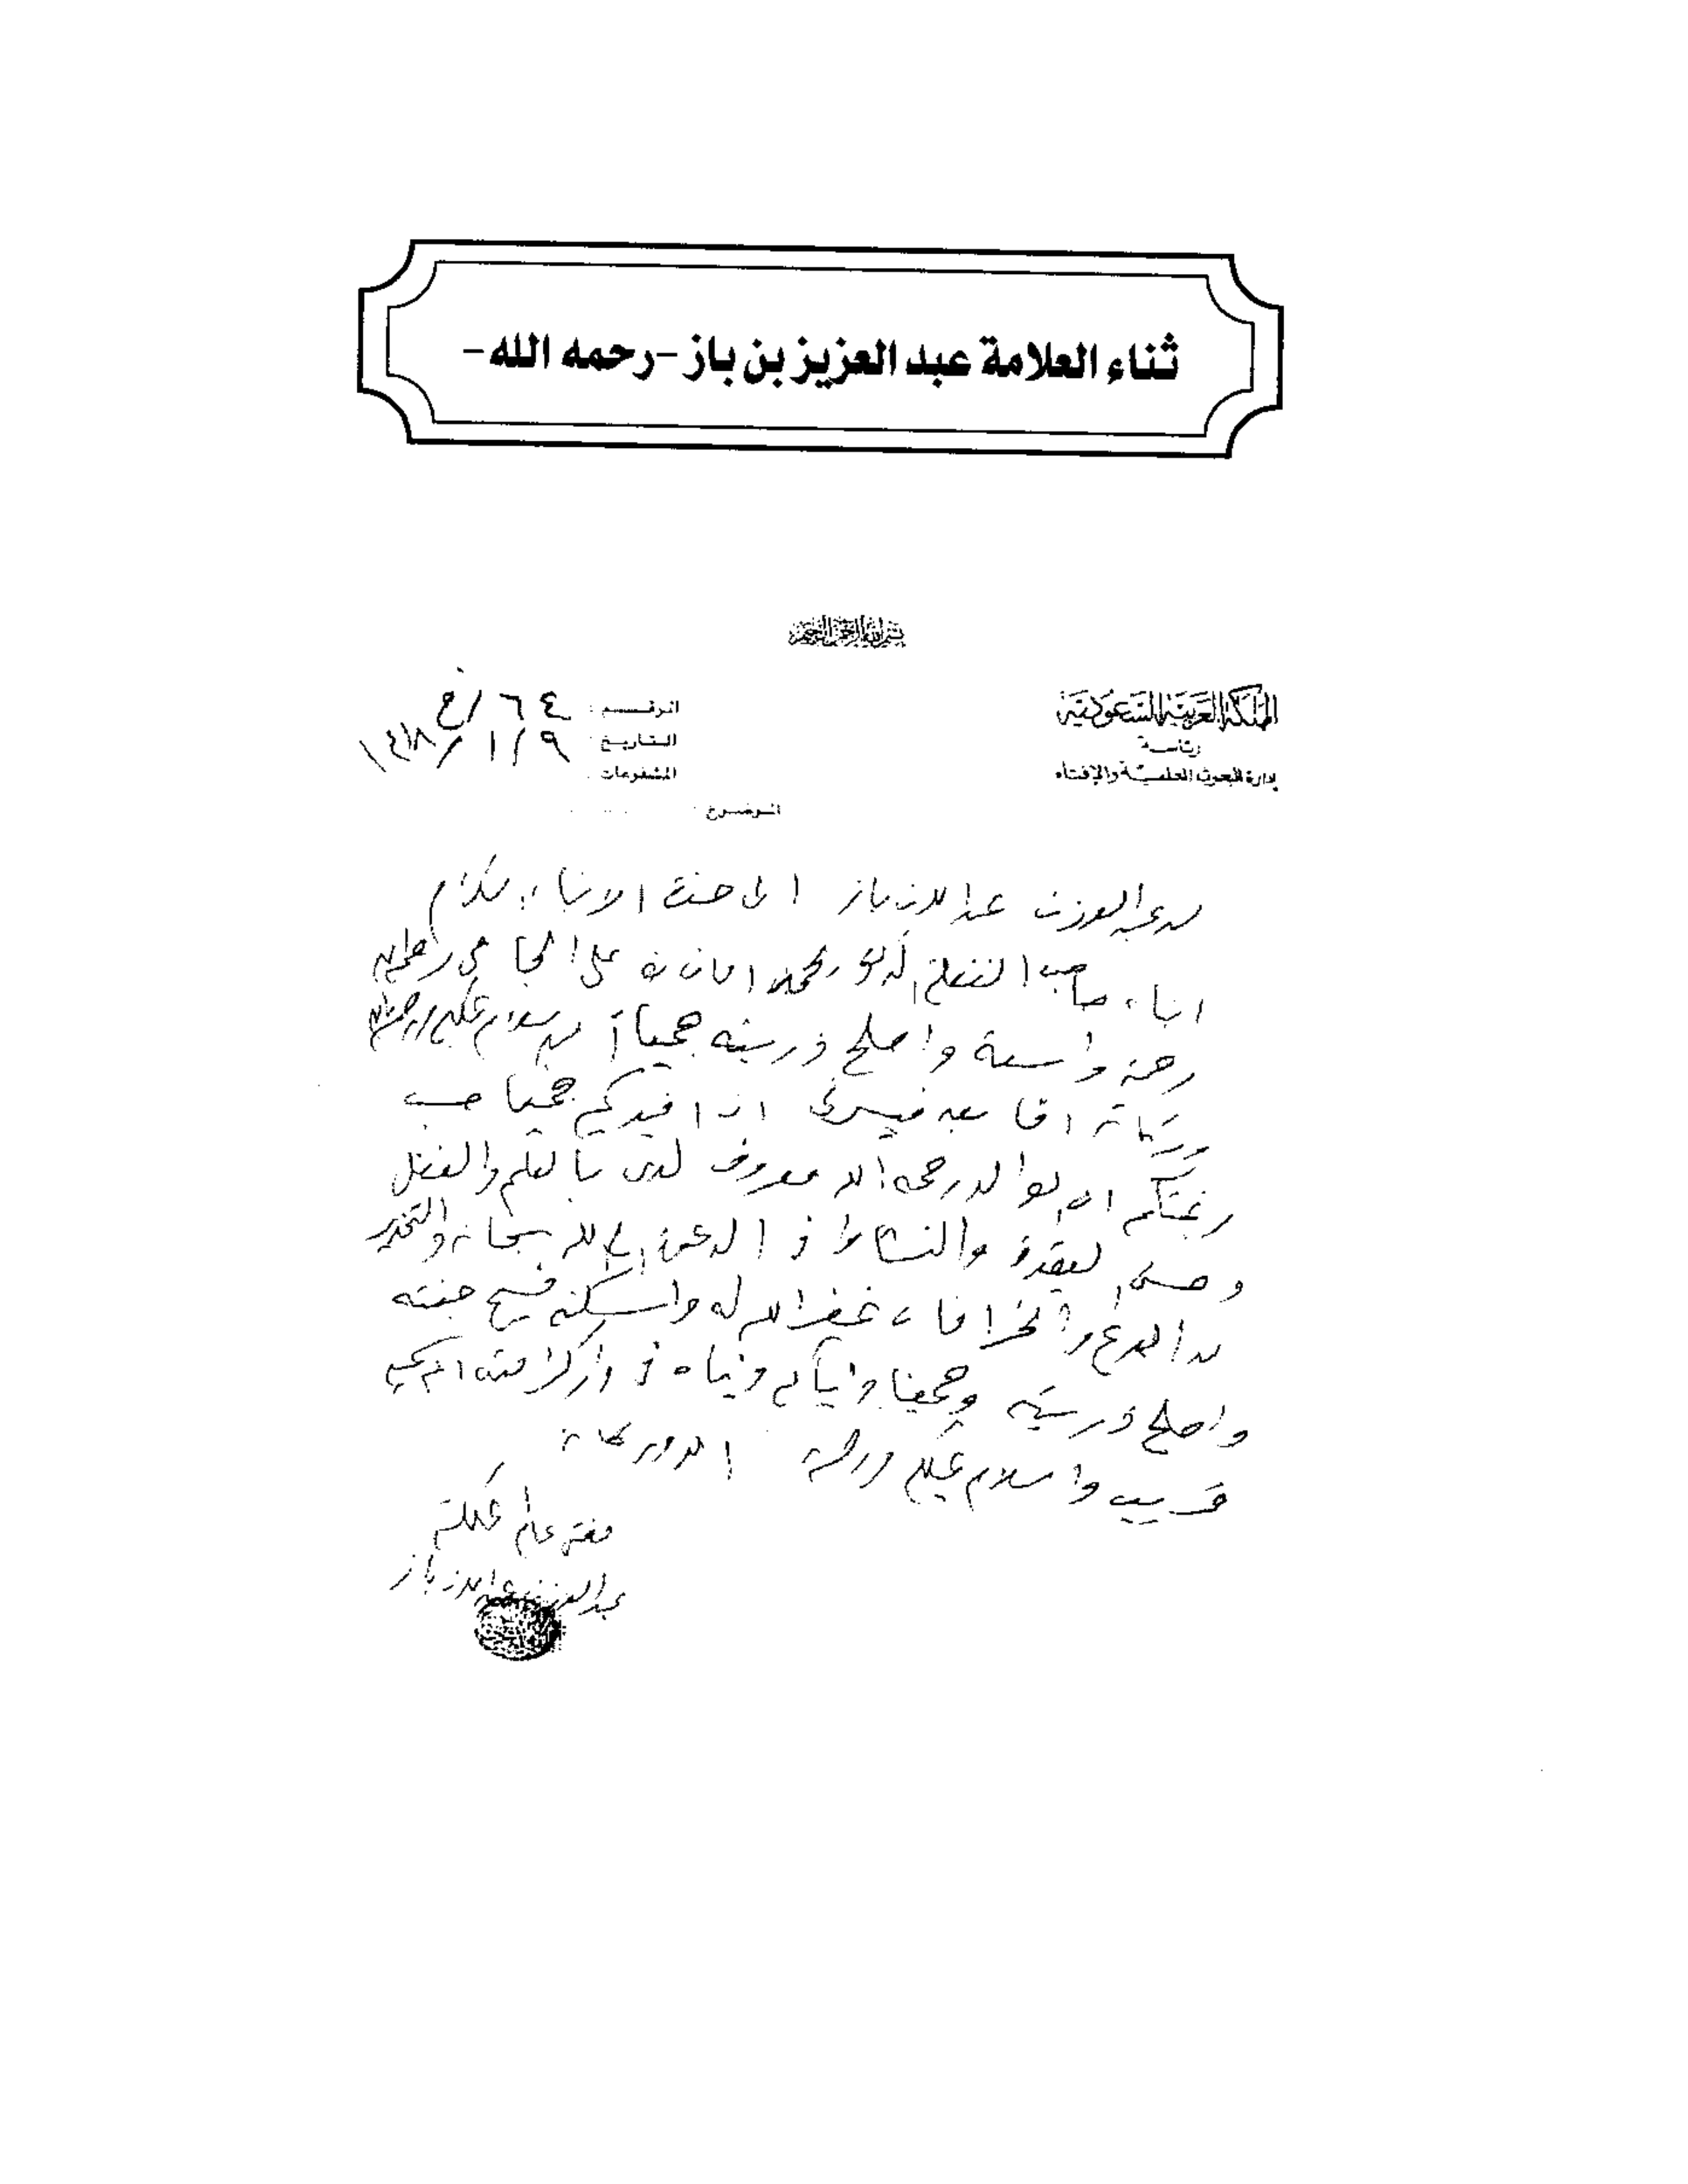 ثناء العلامة عبد العزيز بن باز -رحمه الله-
بسم الله الرحمن الرحيم
المملكة العربية السعودية
رئاسة
إدارة البحوث العلمية والإفتاء
الرقم : ٦٤ /خ
التاريخ : ٩ / ١ / ١٤١٨
المشفوعات
الموضوع :
من عبد العزيز بن عبد الله بن باز الى حضرة الابناء الكرام
ابناء صاحب الفضيلة الدكتور محمد امان بن علي الجامي رحمه الله
رحمة واسعة واصلح ذريته جميعا آمين سلام عليكم ورحمة الله
وبركاته اما بعد فيسرني ان افيدكم جميعا حسب
رغبتكم ان الوالد رحمه الله معروف لدي بالعلم والفضل
وحسن العقيدة والنشاط في الدعوة الى الله سبحانه والتحذير
من البدع والخرافات غفر الله له واسكنه فسيح جنته
واصلح ذريته وجمعنا واياكم واياه في دار كرامته انه سميع
قريب والسلام عليكم ورحمة الله وبركاته
مفتي عام المملكة
عبد العزيز بن عبد الله بن باز